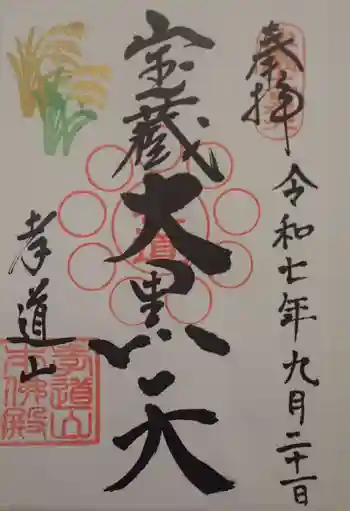 奉拝
令和七年九月二十一日
宝蔵大黒天
孝道山
孝道山
本佛殿